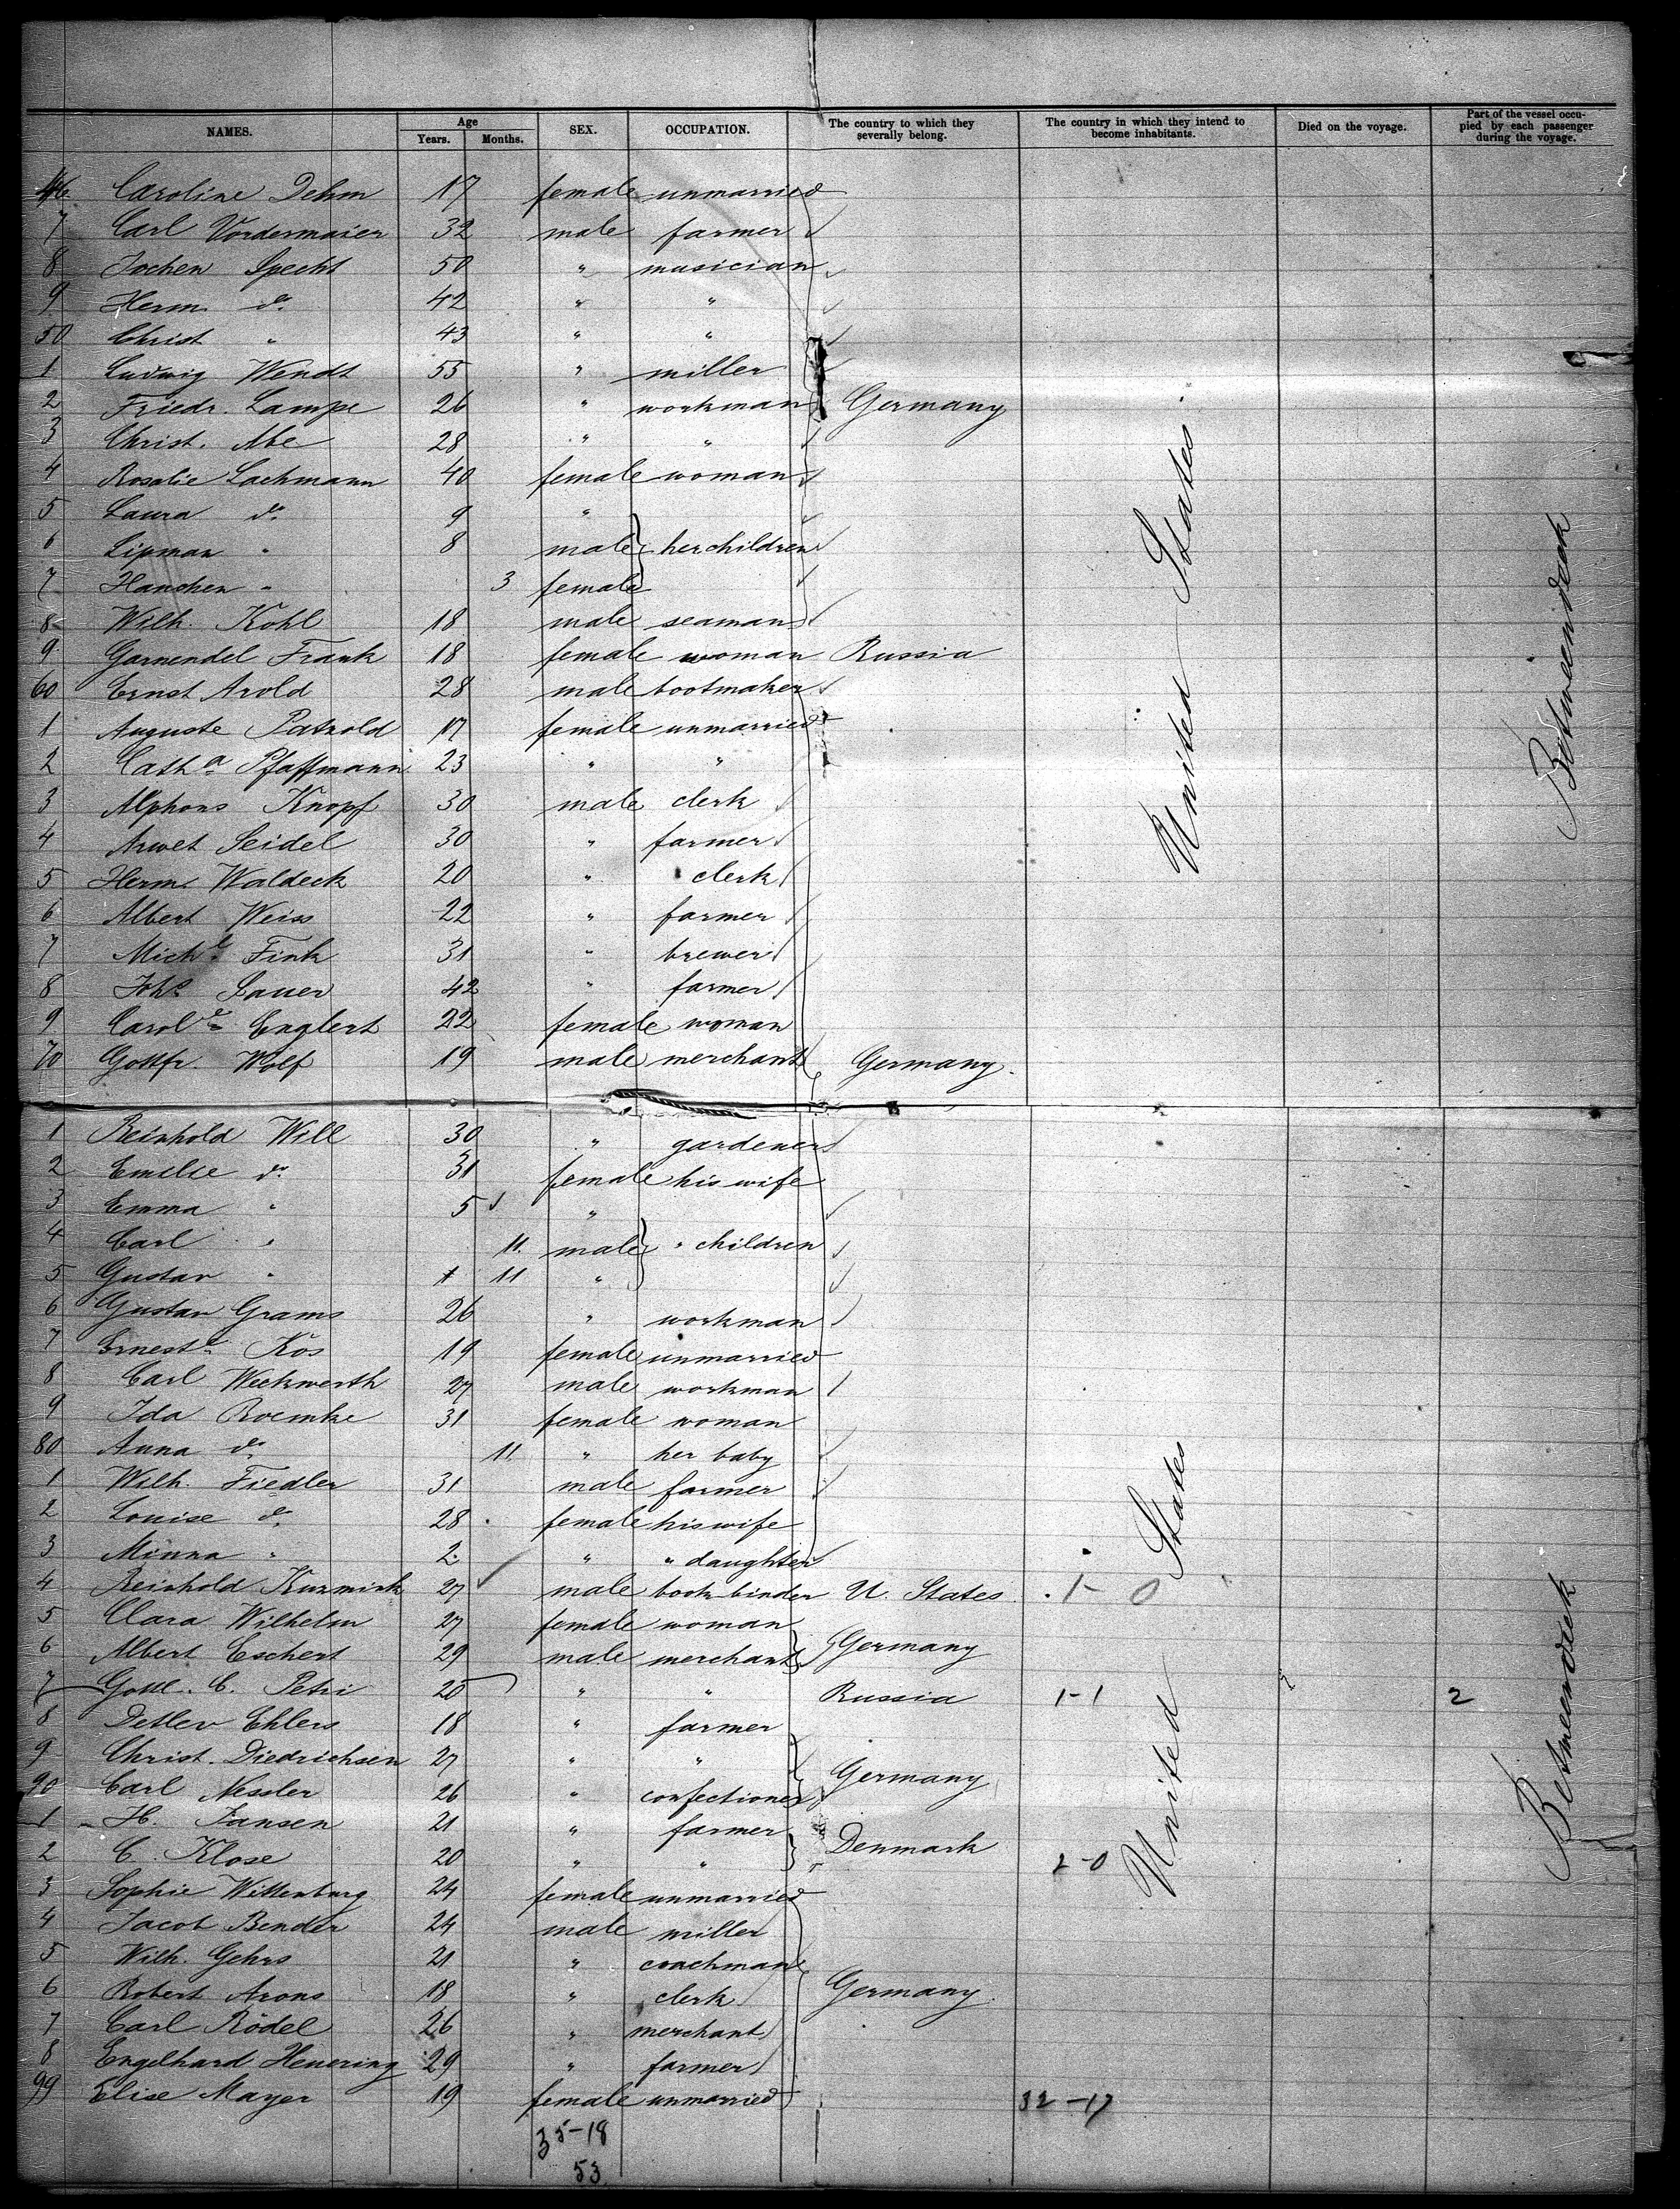 NAMES. Age Years. Months. SEX. OCCUPATION. The country to which they severally belong. The country in which they intend to become inhabitants. Died on the voyage. Part of the vessel occupied by each passenger during the voyage.
46 Caroline Dehm 17 female unmarried
7 Carl Vordermaier 32 male farmer
8 Jochen Specht 50 " musician
9 Herm. do 42 " "
50 Christ " 43 " "
1 Ludwig Wendt 55 " miller
2 Friedr. Lampe 26 " workman Germany
3 Christ. Abe 28 " "
4 Rosalie Lachmann 40 female woman
5 Laura do 9 "
6 Lipman " 8 male her children
7 Hanchen " 3 female
8 Wilh. Kohl 18 male seaman
9 Garnendel Frank 18 female woman Russia
60 Ernst Arold 28 male bootmaker
1 Auguste Patzold 17 female unmarried
2 Catha Pfaffmann 23 " "
3 Alphons Knopf 30 male clerk
4 Arwet Seidel 30 " farmer
5 Herm. Waldeck 20 " clerk
6 Albert Weiss 22 " farmer
7 Michl Fink 31 " brewer
8 Johs Sauer 42 " farmer
9 Carole Englert 22 female woman
70 Gottfr. Wolf 19 male merchant Germany.
United States.
Betweendeck
1 Reinhold Will 30 " gardener
2 Emilie do 31 female his wife
3 Emma " 5 "
4 Carl " 11 male " children
5 Gustav " 11 "
6 Gustav Grams 26 " workman
7 Erneste Kos 19 female unmarried
8 Carl Weckwerth 27 male workman
9 Ida Roemke 31 female woman
80 Anna do 11 " her baby
1 Wilh. Fiedler 31 male farmer
2 Louise do 28 female his wife
3 Minna " 2 " " daughter
4 Reinhold Kuzmink 27 male bookbinder U. States 1-0
5 Clara Wilhelm 27 female woman
6 Albert Eschert 29 male merchant Germany
7 Gottl. C. Petri 25 " " Russia 1-1 2
8 Detlev Ehlers 18 " farmer
9 Christ. Diedrichsen 27 " "
90 Carl Nessler 26 " confectioner Germany
1 H. Jansen 21 " farmer
2 C. Klose 20 " " Denmark 2-0
3 Sophie Wittenburg 24 female unmarried
4 Jacob Bender 24 male miller
5 Wilh. Gehrs 21 " coachman
6 Robert Arons 18 " clerk Germany.
7 Carl Rödel 26 " merchant
8 Engelhard Heuering 29 " farmer
99 Elise Mayer 19 female unmarried
United States
Betweendeck
32-17
35-18
53